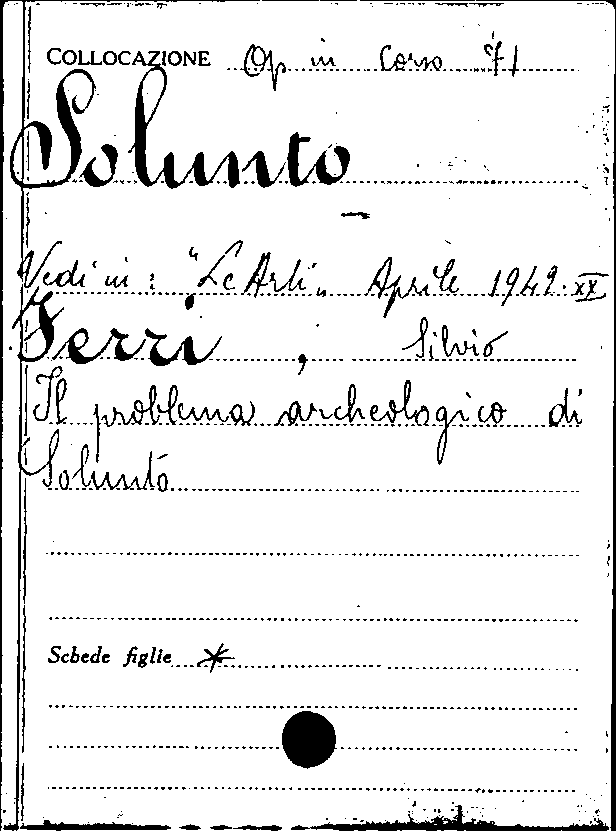 COLLOCAZIONE Op in Corso 71
Solunto
Vedi in: "Le Arti" Aprile 1942·XX
Ferri, Silvio
Il problema archeologico di
Solunto
Schede figlie *